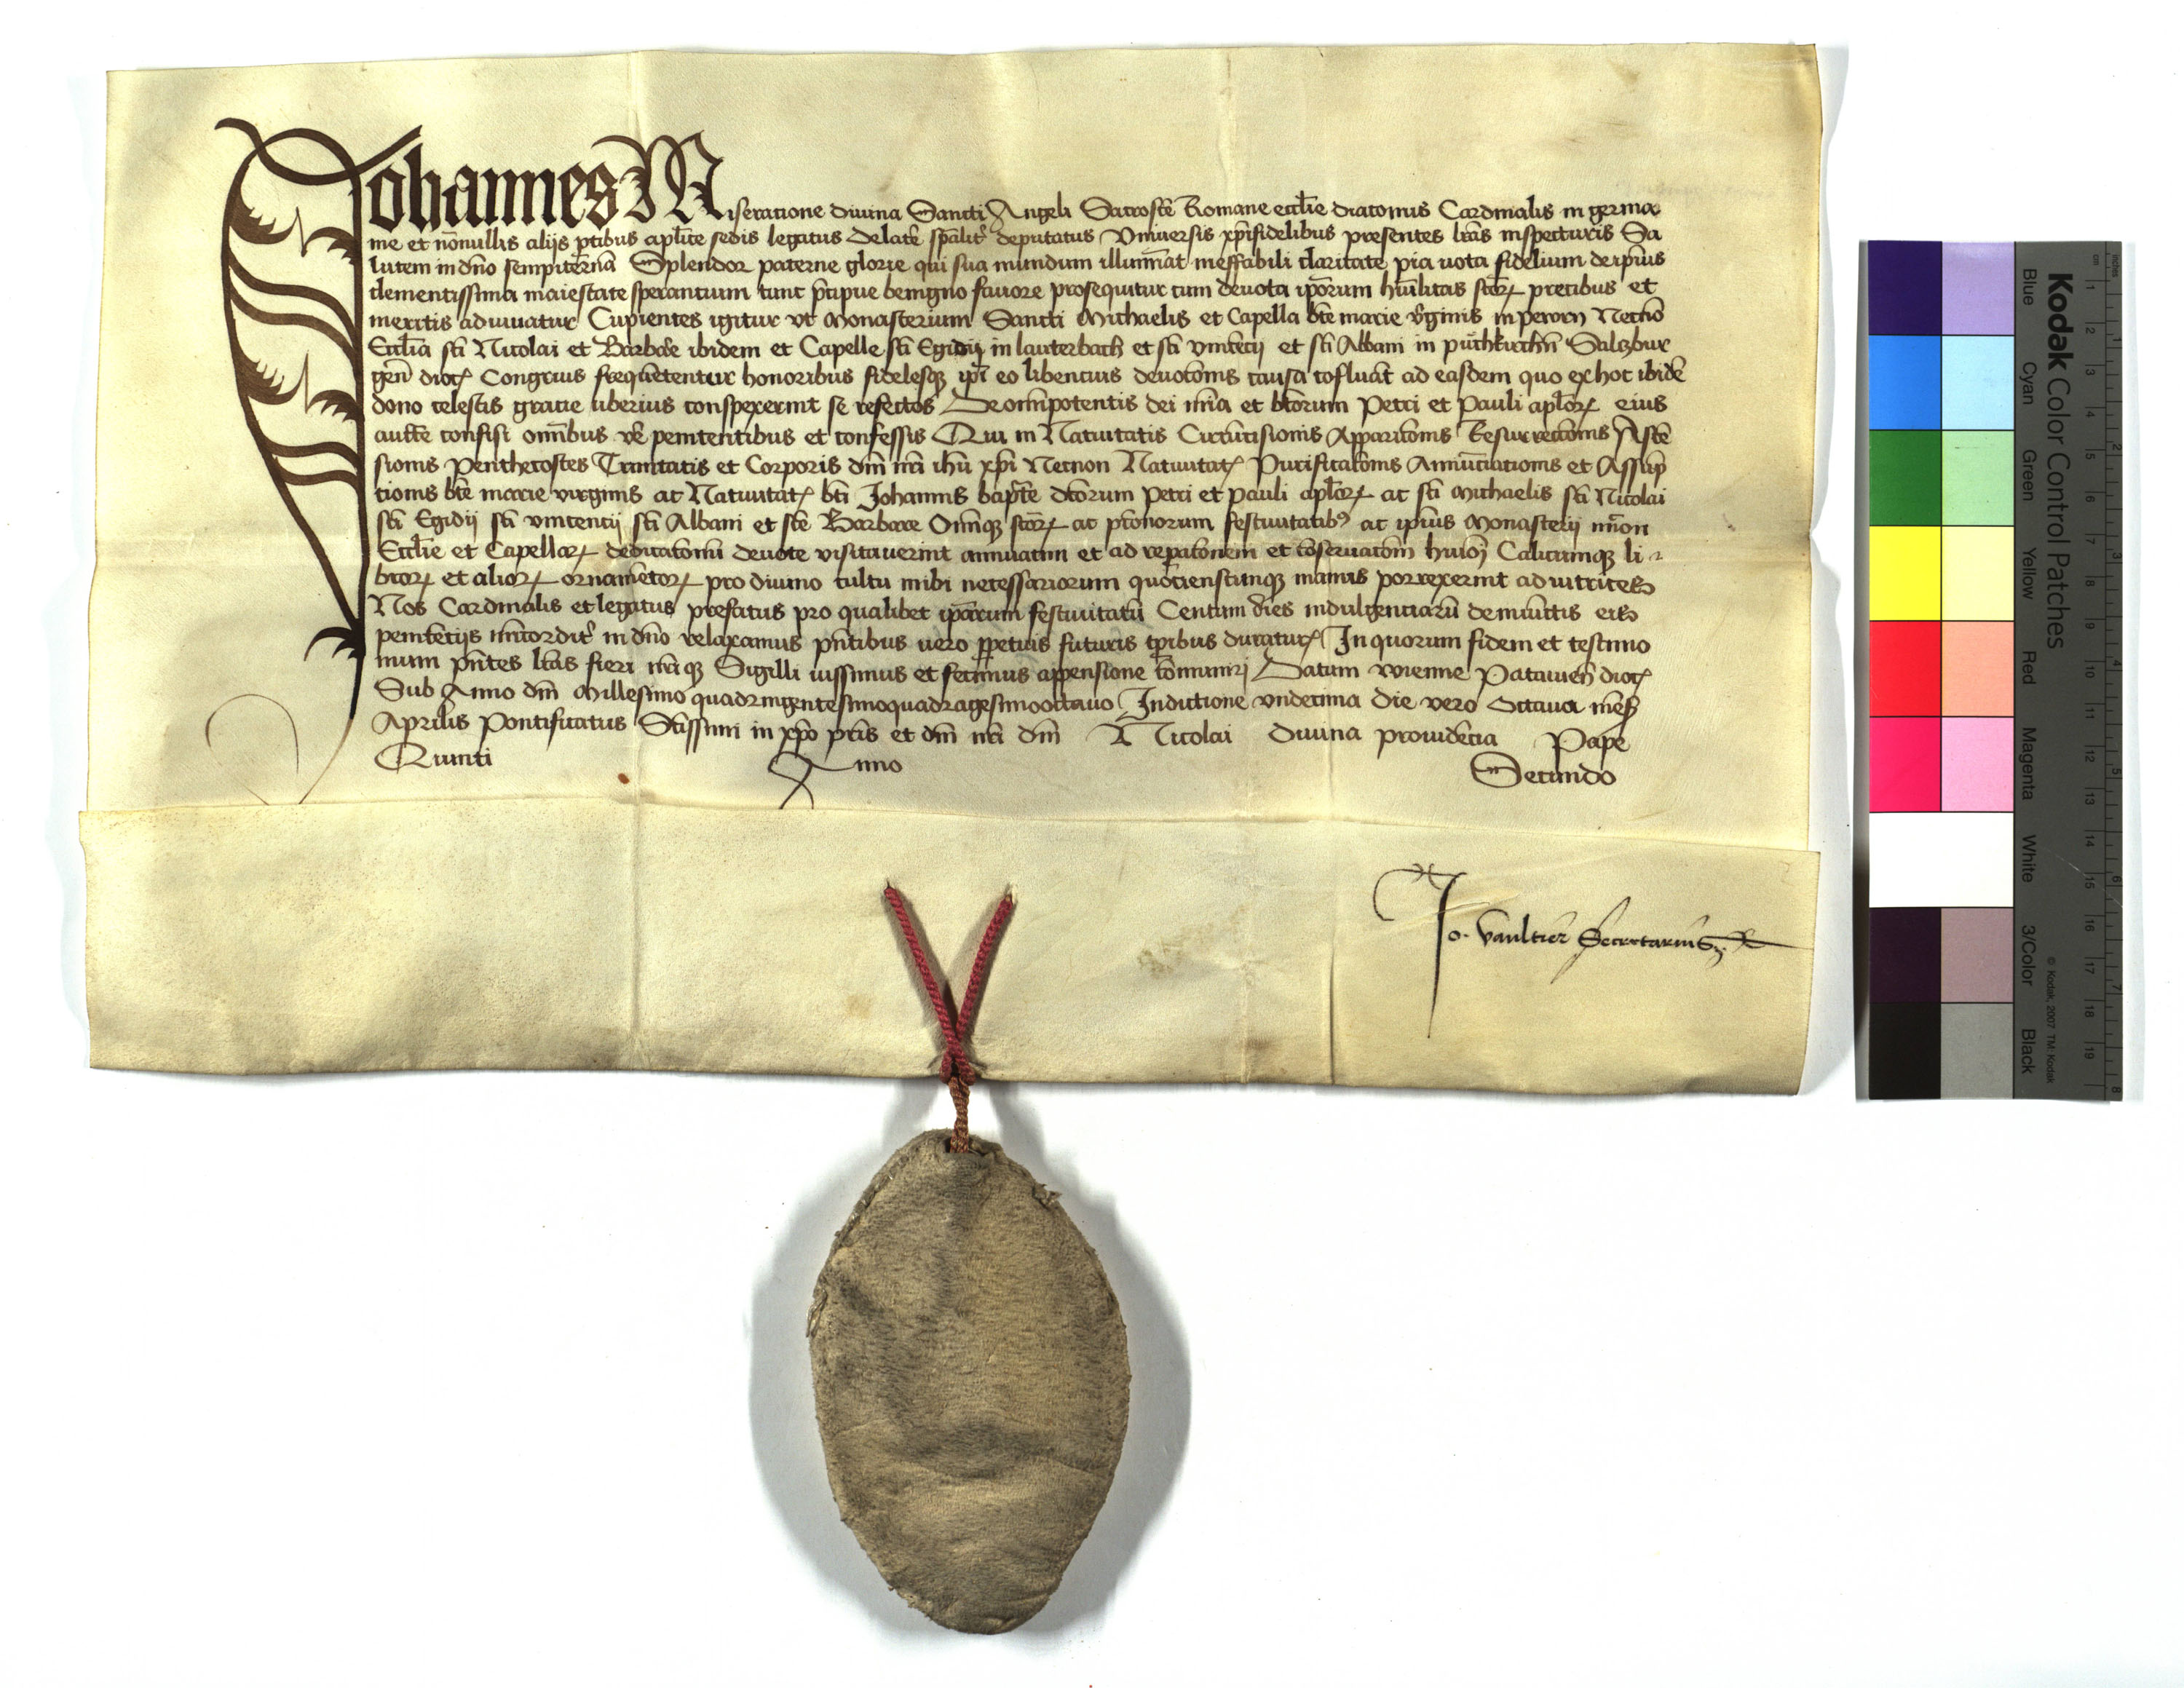 Johannes Miseratione diuina Sancti Angeli Sacroste Romane eccl̄ie diaconus Cardinalis in germa
nie et nōnullis alijs ꝑtibus apl̄ice sedis legatus de latē sp̄alit᷑ deputatus Vniuersis xp̄ifidelibus presentes l̄ras inspecturis Sa
lutem in dn̄o sempiternā Splendor paterne glorie qui sua mundum illumīat ineffabili claritate pia uota fidelium de ip̄ius
clementissima maiestate sperantium tunc p̄cipue benigno fauore prosequitur cum deuota ip̄orum hūilitas sc̄oꝝ precibus et
meritis adiuuatur Cupientes igitur vt Monasterium Sancti Michaelis et Capella bt̄e marie v̄ginis in pewrn Necnō
Eccl̄ia sc̄i Nicolai et Barbare ibidem et Capelle sc̄i Egidij in lauterbach et sc̄i vincēcij et sc̄i Albani in puͤchkirchn̄ Salczbur
gen̄ dioc̄ Congruis frequētentur honoribus fidelesqꝫ ip̄i eo libencius deuoc̄onis causa cōfluāt ad easdem quo ex hoc ibidē
dono celestis gracie uberius conspexerint se refectos De om̄ipotentis dei mīa et bt̄orum Petri et Pauli apl̄oꝝ eius
auct̄e confisi om̄ibus v̄e penitentibus et confessis Qui in Natiuitatis Circūcisionis Appariconis Resurrectionis Ascē
sionis Penthecostes Trinitatis et Corporis dn̄i nr̄i ihū xp̄i Necnon Natiuitat᷑ Purificac̄onis Annūciationis et Assūp
tionis bt̄e marie virginis ac Natiuitat᷑ bt̄i Johannis bap̄te dc̄orum Petri et Pauli apl̄oꝝ ac sc̄i Michaelis sc̄i Nicolai
sc̄i Egidij sc̄i vincencij sc̄i Albani et sc̄e Barbare Om̄iqꝫ sc̄oꝝ ac pr̄onorum festiuitatibꝰ ac ip̄ius Monasterij nc̄non
Eccl̄ie et Capellaꝝ dedicac̄onū deuote visitauerint annuatim et ad reparac̄onem et cōseruac̄om̄ huiōi Calicumqꝫ li-
broꝝ et alioꝝ ornamētoꝝ pro diuino cultu inibi necessariorum quociēscūqꝫ manus porrexerint adiutrices
Nos Cardinalis et legatus prefatus pro qualibet ip̄arum festiuitatū Centum dies indulgenciarū de iniunctis eis
penitēcijs mīcordit᷑ in dn̄o relaxamus pn̄tibus uero ꝑpetuis futuris tp̄ibus duratur᷑ In quorum fidem et testimo
nium pn̄tes l̄ras fieri nr̄iqꝫ Sigilli iussimus et fecimus appensione cōmuniri Datum wienne Patauien̄ dioc̄
Sub Anno dn̄i Millesimo quadringentesimoquadragesimooctauo Indictione vndecima die vero Octaua mēs̄
Aprilis Pontificatus Sc̄issimi in xp̄o pr̄is et dn̄i nr̄i dn̄i Nicolai diuina prouidēcia Pape
Quinti Anno Secundo
Jo. Vaultier Secretarius
Kodak Color Control Patches
Blue Cyan Green Yellow Red Magenta White 3/Color Black
© Kodak, 2007 TM: Kodak
inches 1 2 3 4 5 6 7 8
cm 1 2 3 4 5 6 7 8 9 10 11 12 13 14 15 16 17 18 19